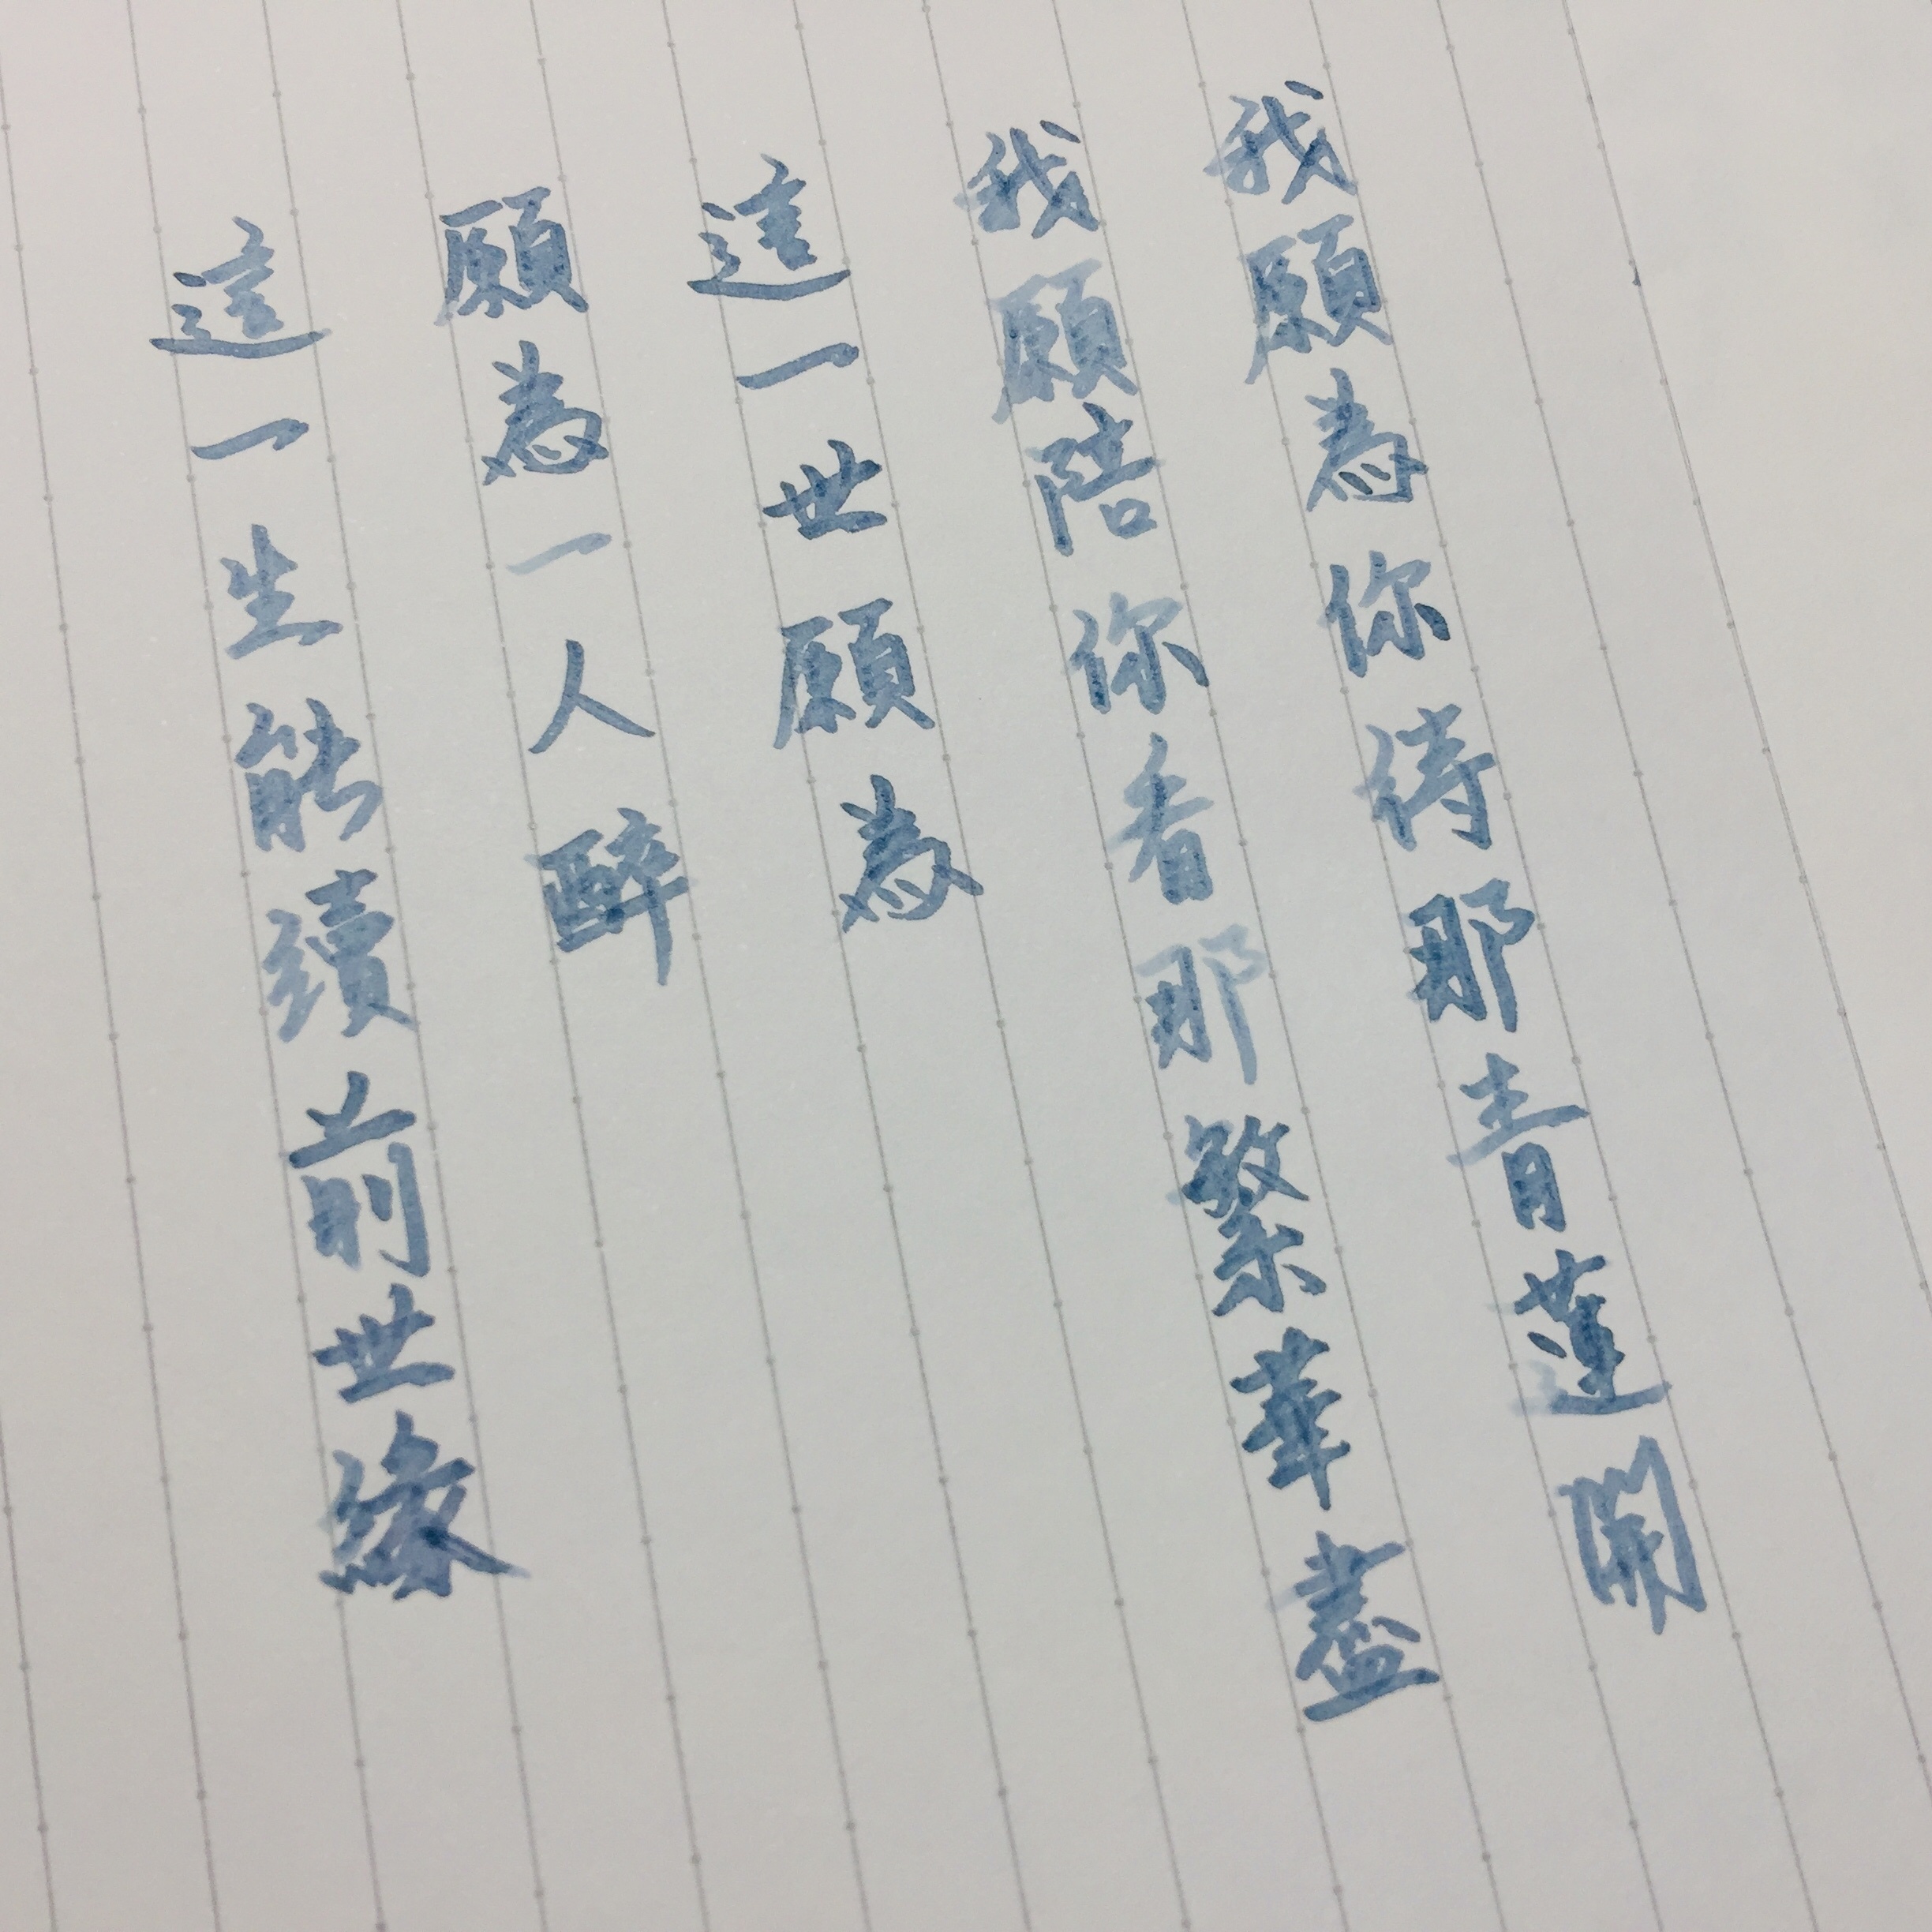 我願為你待那青蓮開
我願陪你看那繁華盡
這一世願為
願為一人醉
這一生能續上前世緣